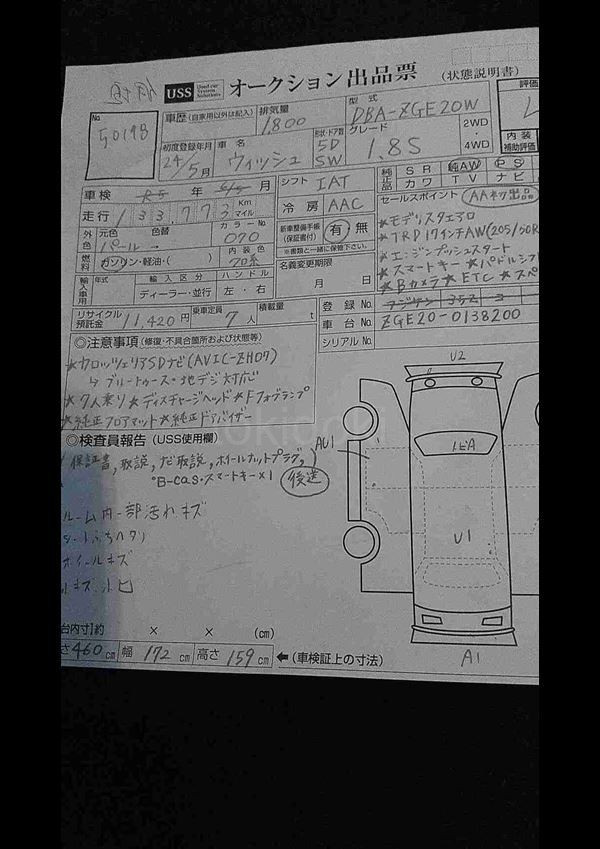 USS Used car System Solutions オークション出品票 (状態説明書)
No. 50198
車歴 (自家用以外は記入) 排気量 1,800 型式 DBA-ZGE20W 評価
初度登録年月 24/5月 車名 ウィッシュ 形状・ドア数 5D SW グレード 1.8S 2WD ・ 4WD 内装 補助評価
車検 年 月 シフト IAT 純正品 SR 純AW PS カワ TV ナビ
走行 133,773 Km マイル 冷房 AAC セールスポイント AA初出品
外色 元色 パール 色替 カラーNo. 070 新車整備手帳 (保証書付) 有・無 ※書類と一緒に保管下さい。
★モデリスタエアロ
★TRD17インチAW(205/50R
★エンジンプッシュスタート
★スマートキー★パドルシフ
★Bカメラ★ETC★スペ
燃料 ガソリン・軽油・( ) 内装色 名義変更期限 月 日
輸入車用 年式 輸入区分 ディーラー・並行 ハンドル 左・右
リサイクル預託金 11,420円 乗車定員 7人 積載量 t
登録No.
車台No. ZGE20-0138200
シリアルNo.
◎注意事項 (修復・不具合箇所および状態等)
★カロッツェリアSDナビ(AVIC-ZH07)
↳ブルートゥース・地デジ対応
★7人乗り★ディスチャージヘッド★Fフォグランプ
★純正フロアマット★純正ドアバイザー
◎検査員報告 (USS使用欄)
保証書,取説,ナビ取説,ホイールナットプラグ,
°B-cas・スマートキー×1 後送
ルーム内一部汚れキズ
ホイールキズ
U2
AU1
U1
A1
台内寸1約 × × (cm)
さ460cm 幅 172cm 高さ 159cm ←(車検証上の寸法)